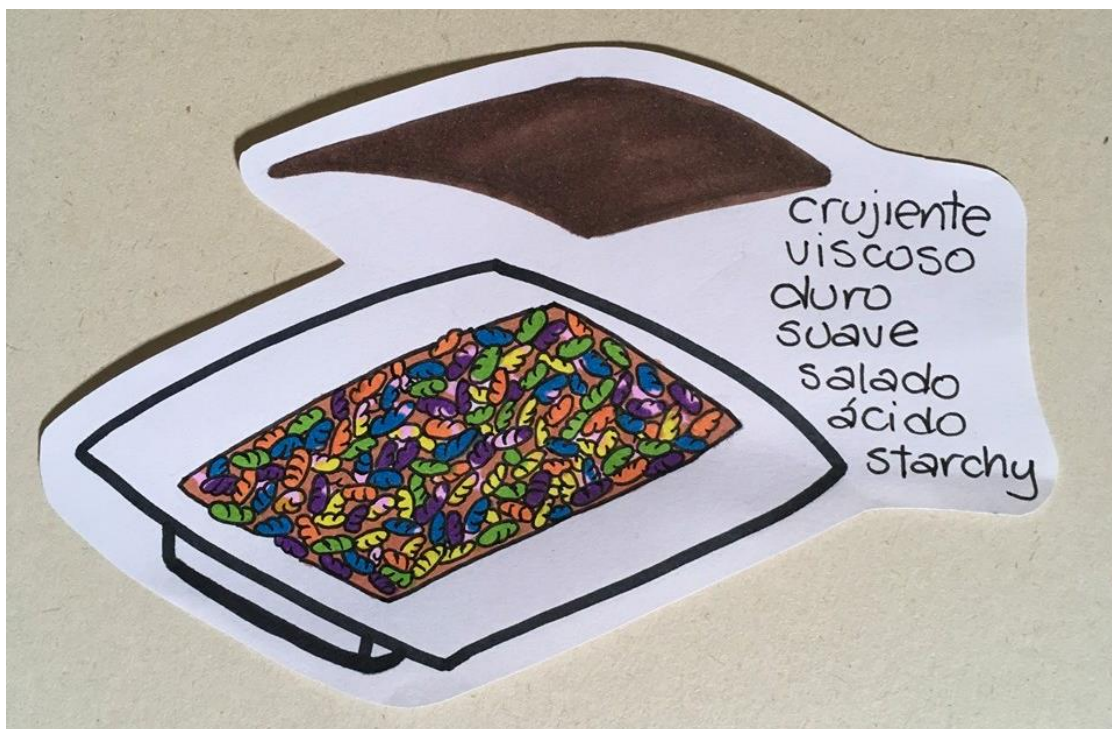 crujiente
viscoso
duro
suave
salado
ácido
starchy